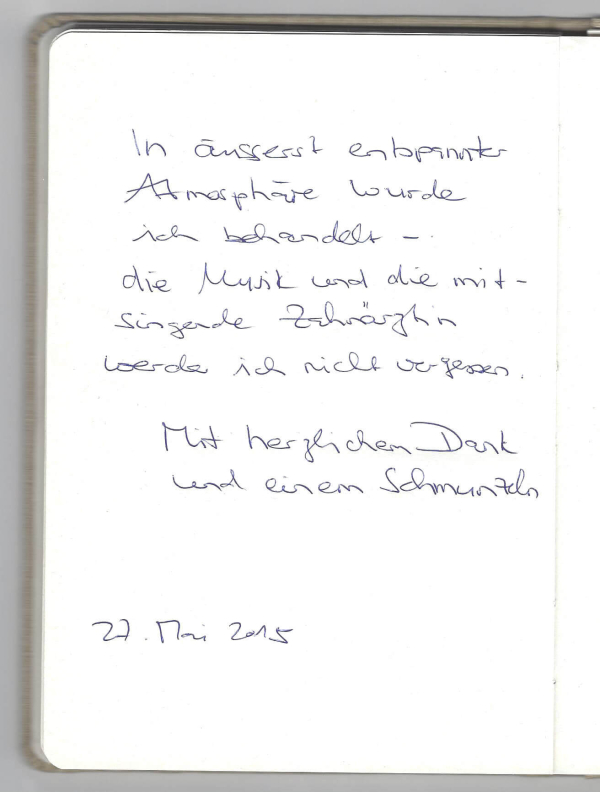 In äusserst entspannter
Atmosphäre wurde
ich behandelt –
die Musik und die mit-
singende Zahnärztin
werde ich nicht vergessen.
Mit herzlichem Dank
und einem Schmunzeln
27. Mai 2015